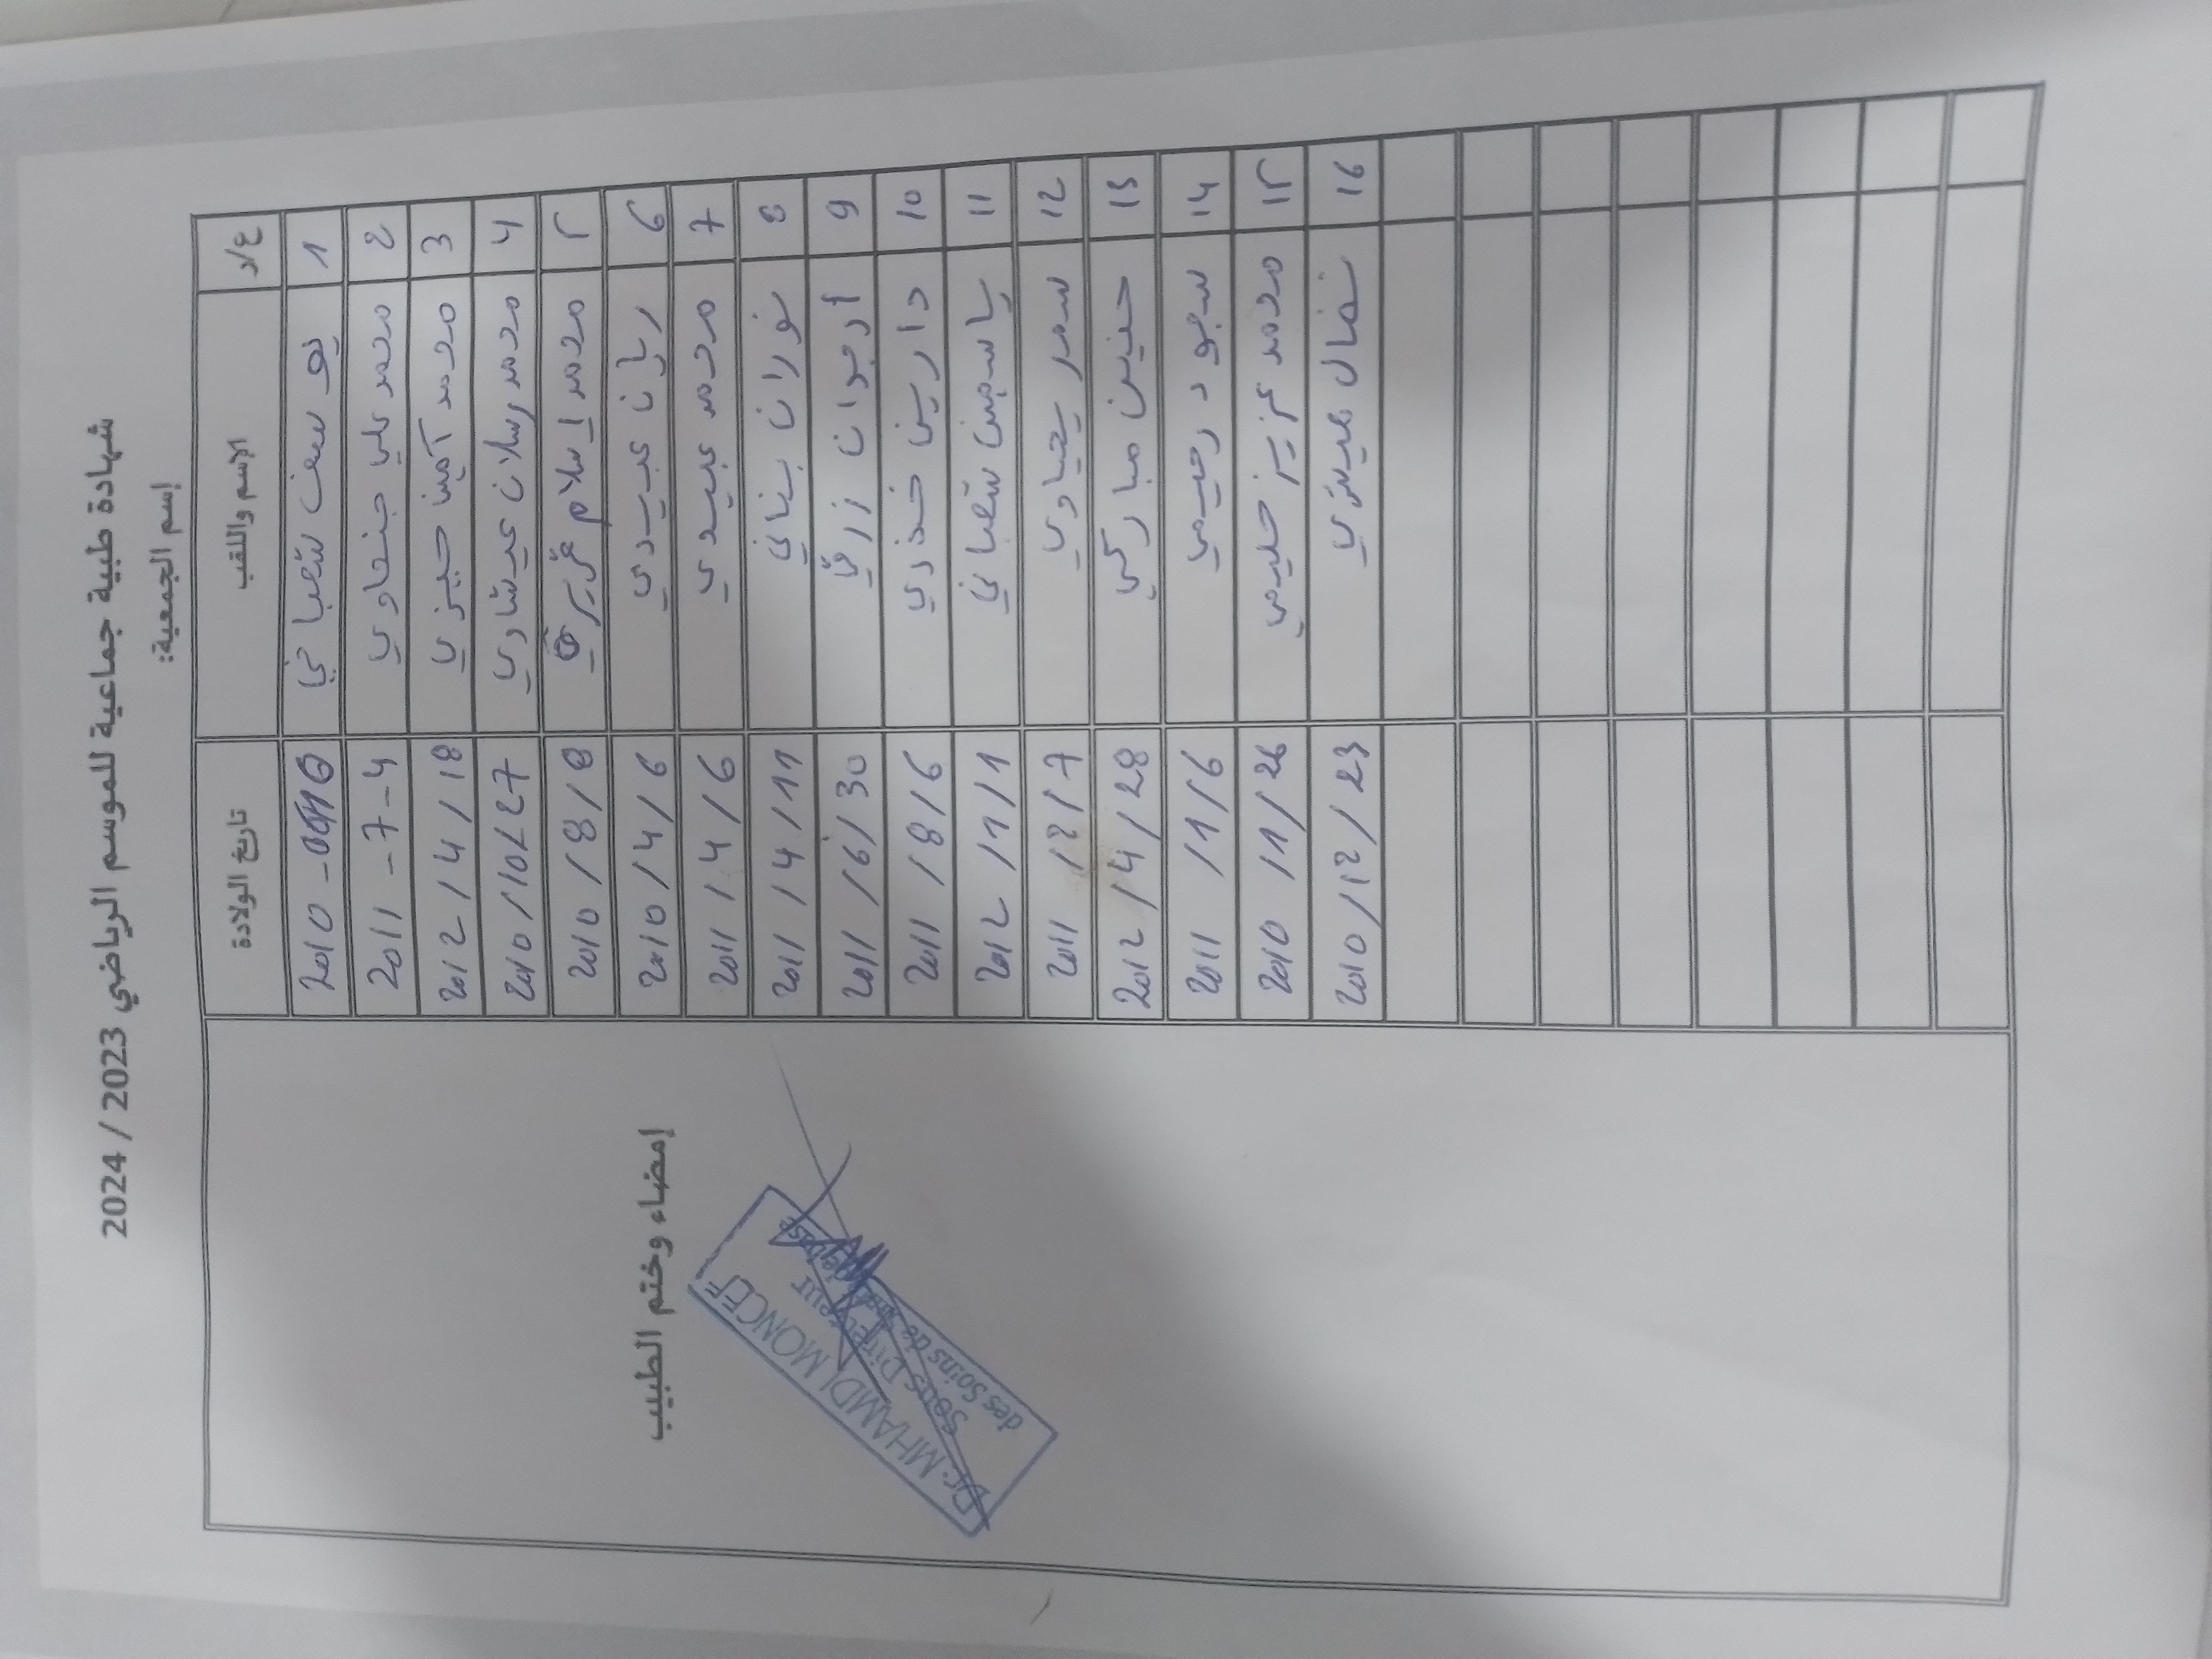 شهادة طبية جماعية للموسم الرياضي 2023 / 2024
إسم الجمعية:
ع/د الاسم واللقب تاريخ الولادة
1 يوسف شعباني 2010 -
2 محمد علي جنحاوي 2011 -7-4
3 محمد آمين حيزي 2012 /4/18
4 محمد رسلان عيشاوي 2010 /10/27
5 محمد اسلام 2010 /8/8
6 ريان عبيدي 2010 /4/6
7 محمد عبيدي 2011 /4/6
8 نوران بناني 2011 /4/11
9 أرجوان زرقي 2011 /6/30
10 دارين خذري 2011 /8/6
11 ياسمين شعباني 2012 /1/1
12 سمر يحياوي 2011 /2/7
13 حنين مباركي 2012 /4/28
14 سجود رحيمي 2011 /1/6
15 محمد عزيز حليمي 2010 /1/26
16 نضال 2010/12/23
إمضاء وختم الطبيب
Dr. MHAMDI MONCEF
Sous Directeur
des Soins de Santé de base